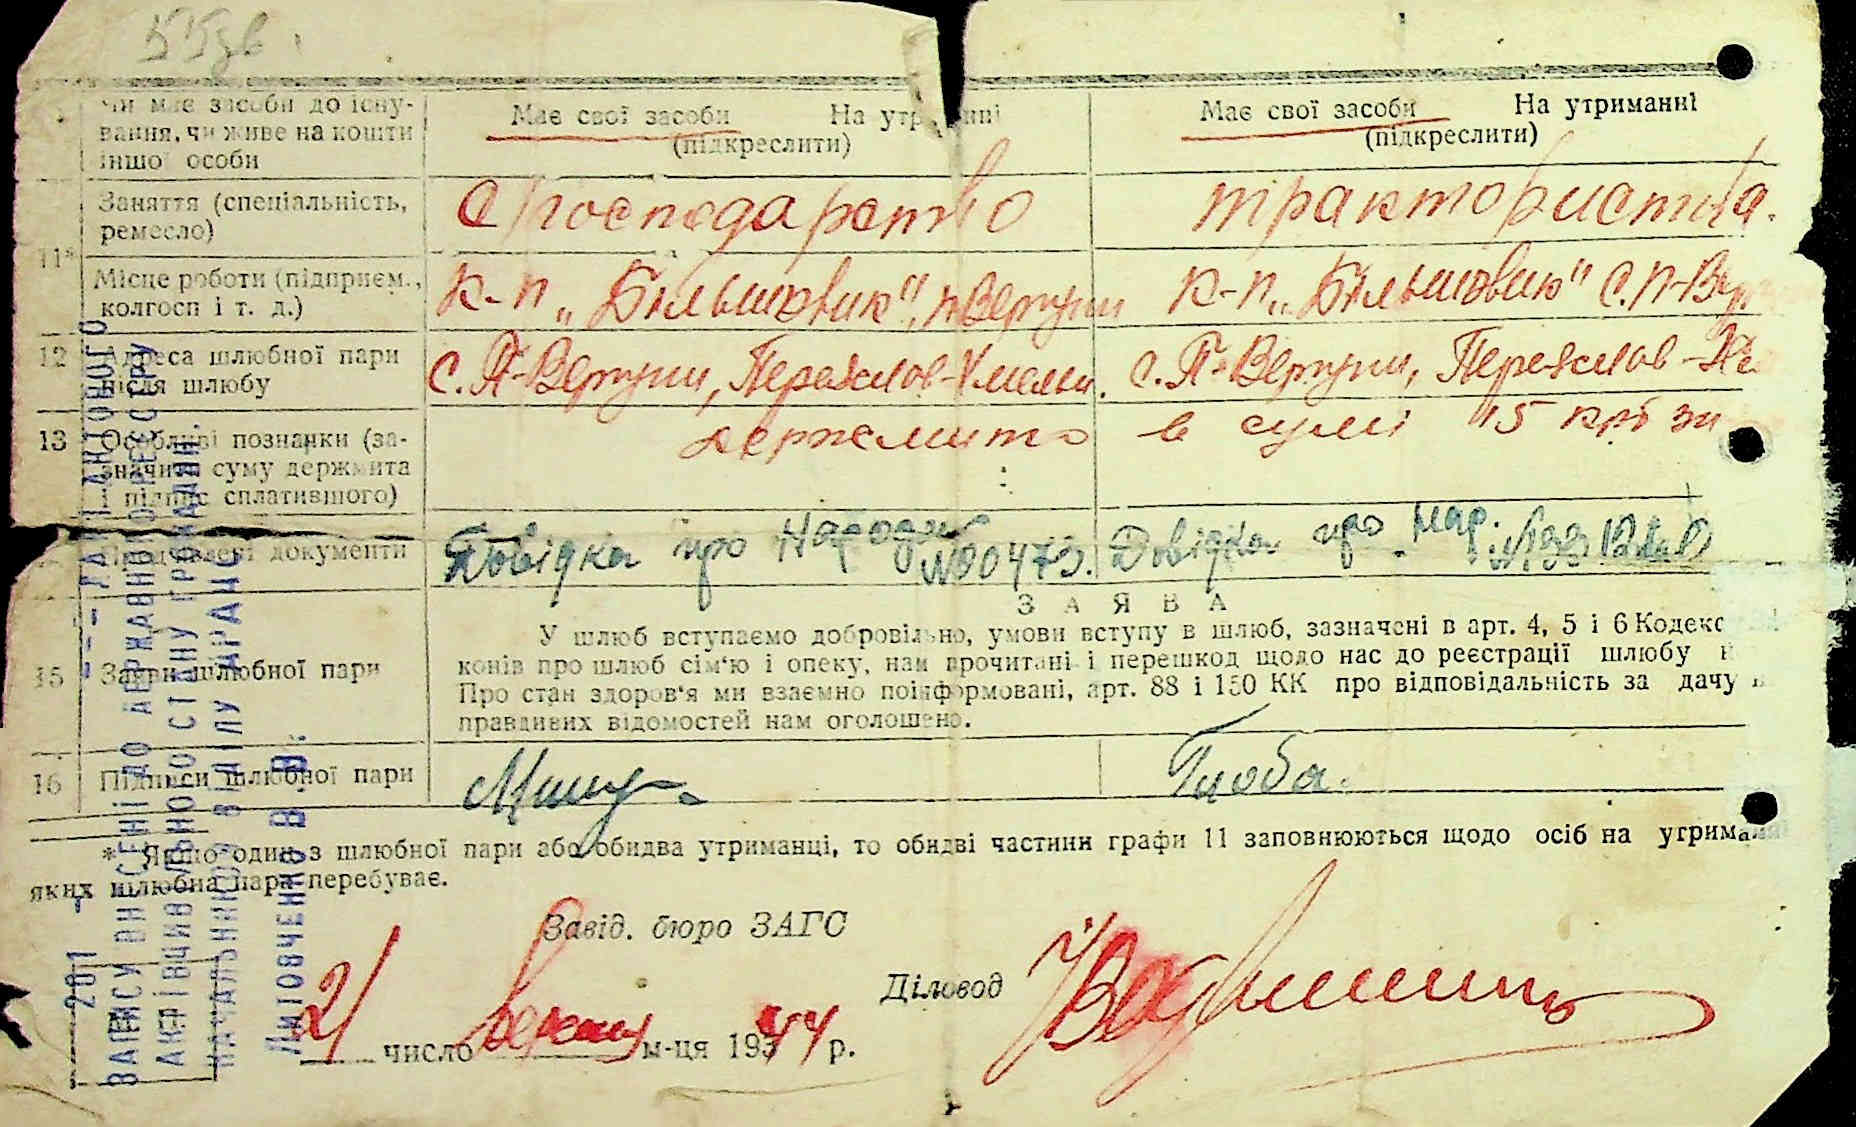 55зв.
Чи має засоби до існу-
вання, чи живе на кошти
іншої особи
Має свої засоби На утриманні
(підкреслити)
Має свої засоби На утриманні
(підкреслити)
11*
Заняття (спеціальність,
ремесло)
с господарство
трактористка.
Місце роботи (підприєм.,
колгосп і т. д.)
к-п „Більшовик",
к-п „Більшовик" С. П-Вер
12 Адреса шлюбної пари
після шлюбу
с. П-Вергуни, Переяслов-Хмельн.
с. П-Вергуни, Переяслов-Х
13 Особливі познанки (за-
значити суму держмита
і підпис сплатившого)
держмито в сумі 15 крб
документи
Довідка про Народж №00473.
Довідка про нар.
15 Заяви шлюбної пари
ЗАЯВА
У шлюб вступаємо добровільно, умови вступу в шлюб, зазначені в арт. 4, 5 і 6 Кодекс
конів про шлюб сім'ю і опеку, нам прочитані і перешкод щодо нас до реєстрації шлюбу н
Про стан здоров'я ми взаємно поінформовані, арт. 88 і 150 КК про відповідальність за дачу н
правдивих відомостей нам оголошено.
16 Підписи шлюбної пари
* Якщо один з шлюбної пари або обидва утриманці, то обидві частини графи 11 заповнюються щодо осіб на утриманні
яких шлюбна пара перебуває.
Завід. бюро ЗАГС
Діловод
21 число м-ця 1944 р.
ЗАПИСУ ВНЕСЕНІ ДО ДЕРЖАВНОГО РЕЄСТРУ
АКТІВ ЦИВІЛЬНОГО СТАНУ ГРОМАДЯН.
НАЧАЛЬНИК ВІДДІЛУ ДРАЦС
ЛИТОВЧЕНКО В. В.